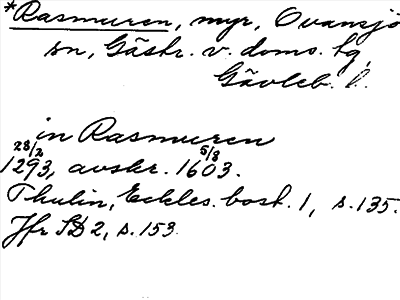 *Rasmuren, myr, Ovansjö
sn, Gästr. v. doms. tg,
Gävleb. l.
in Rasmuren
28/2 1293, avskr. 5/8 1603.
Thulin, Eckles. bost. 1, s. 135.
Jfr SD 2, s. 153.